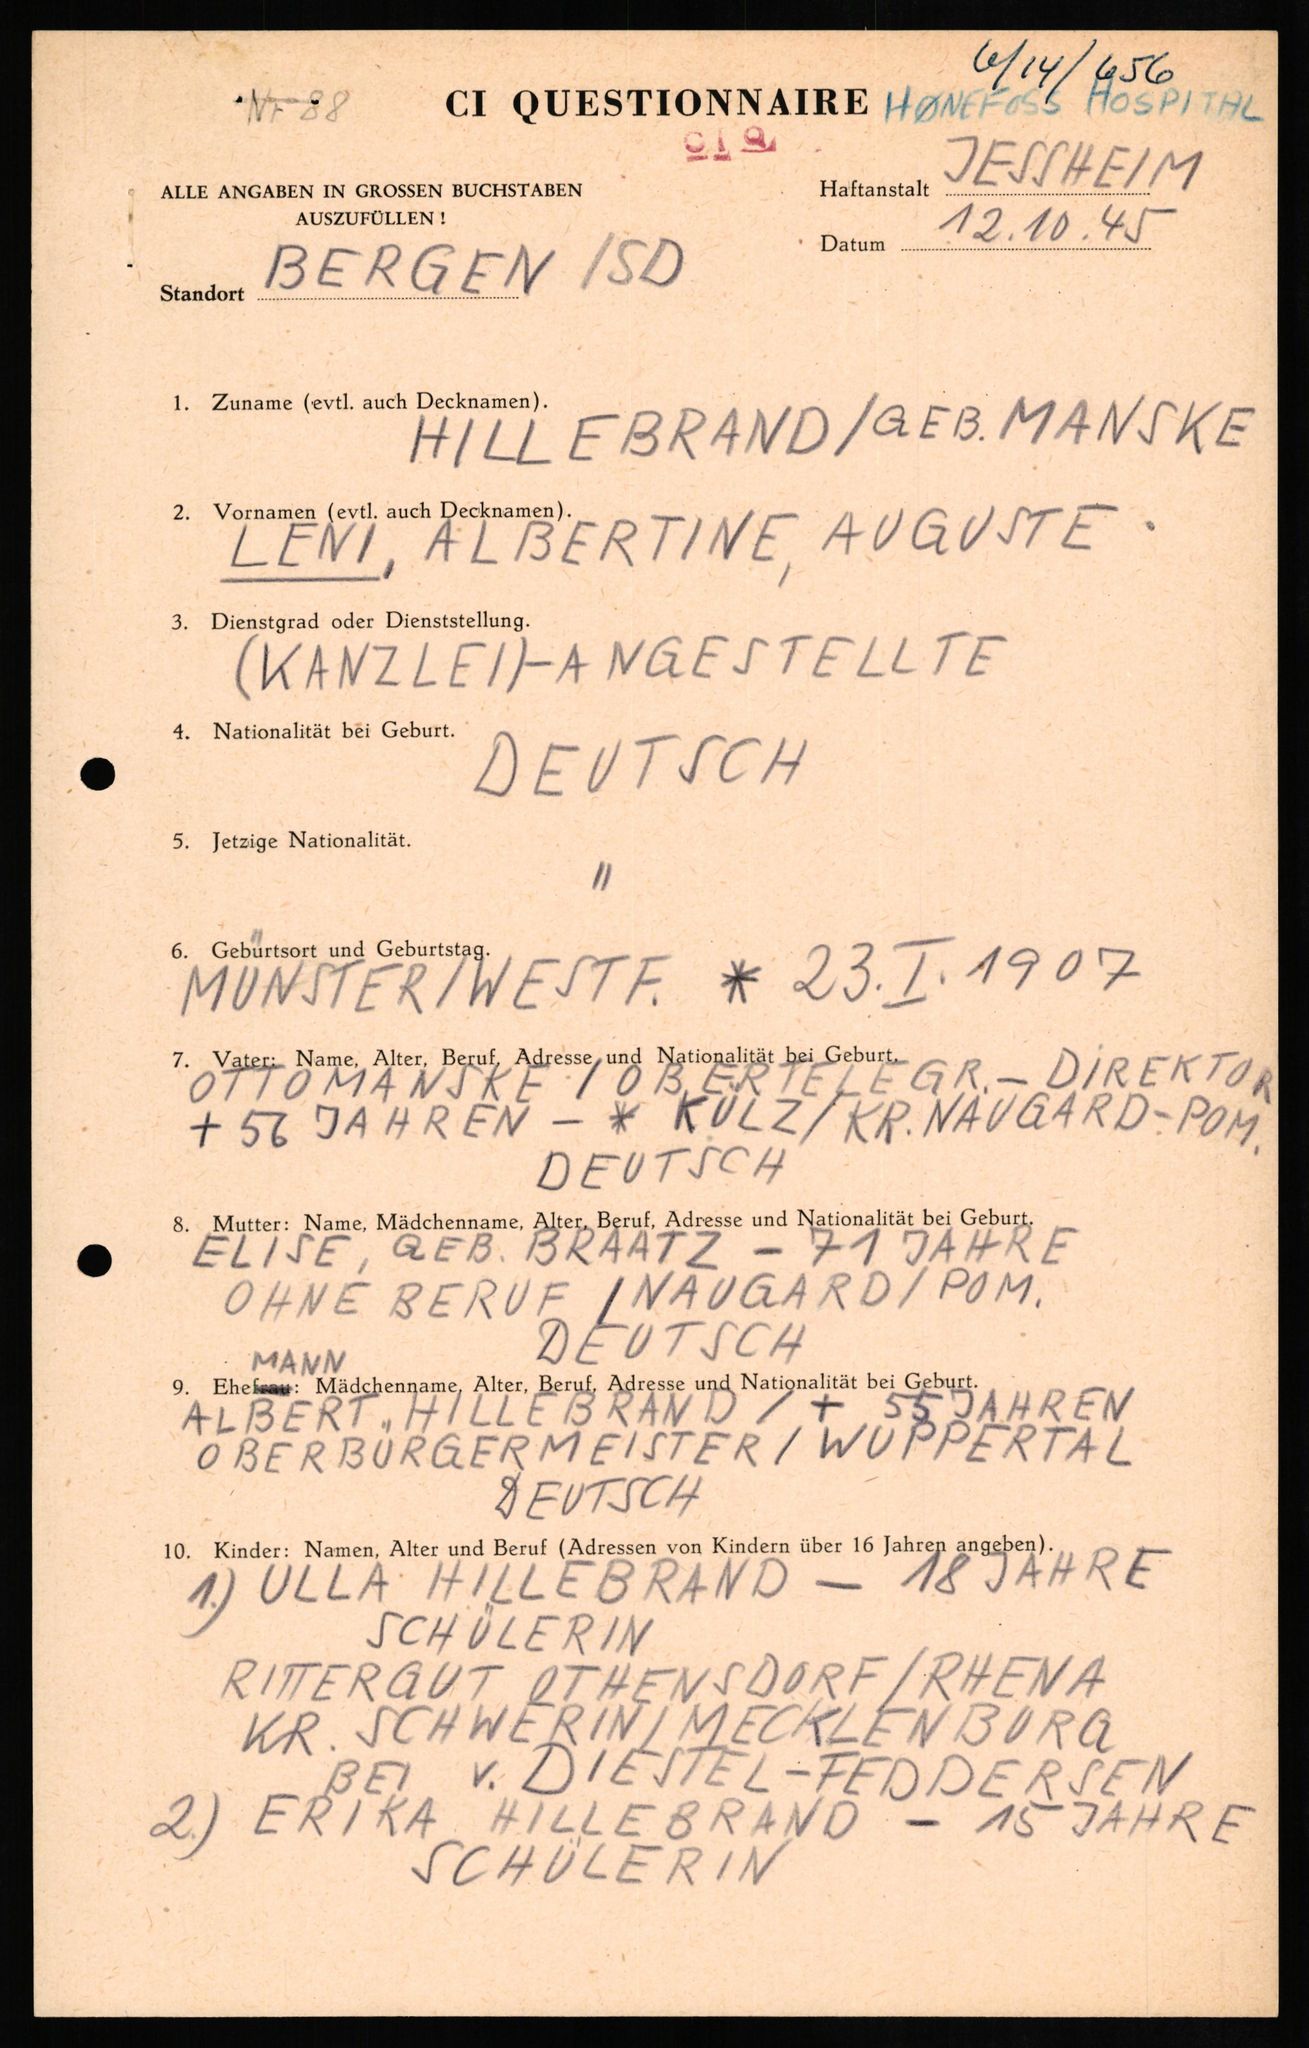 6/14/656
Nr 88
CI QUESTIONNAIRE
HØNEFOSS HOSPITAL
ALLE ANGABEN IN GROSSEN BUCHSTABEN
AUSZUFÜLLEN!
Haftanstalt JESSHEIM
Datum 12.10.45
Standort BERGEN /SD
1. Zuname (evtl. auch Decknamen).
HILLEBRAND/GEB. MANSKE
2. Vornamen (evtl. auch Decknamen).
LENI, ALBERTINE, AUGUSTE
3. Dienstgrad oder Dienststellung.
(KANZLEI)-ANGESTELLTE
4. Nationalität bei Geburt.
DEUTSCH
5. Jetzige Nationalität.
"
6. Geburtsort und Geburtstag.
MÜNSTER/WESTF. * 23.I.1907
7. Vater: Name, Alter, Beruf, Adresse und Nationalität bei Geburt.
OTTO MANSKE / OBERTELEGR.-DIREKTOR
+ 56 JAHREN - * KÜLZ/KR. NAUGARD-POM.
DEUTSCH
8. Mutter: Name, Mädchenname, Alter, Beruf, Adresse und Nationalität bei Geburt.
ELISE, GEB. BRAATZ - 71 JAHRE
OHNE BERUF / NAUGARD/POM.
DEUTSCH
MANN
9. Ehefrau: Mädchenname, Alter, Beruf, Adresse und Nationalität bei Geburt.
ALBERT HILLEBRAND / + 55 JAHREN
OBERBÜRGERMEISTER / WUPPERTAL
DEUTSCH
10. Kinder: Namen, Alter und Beruf (Adressen von Kindern über 16 Jahren angeben).
1.) ULLA HILLEBRAND - 18 JAHRE
SCHÜLERIN
RITTERGUT OTHENSDORF/RHENA
KR. SCHWERIN/MECKLENBURG
BEI v. DIESTEL-FEDDERSEN
2.) ERIKA HILLEBRAND - 15 JAHRE
SCHÜLERIN